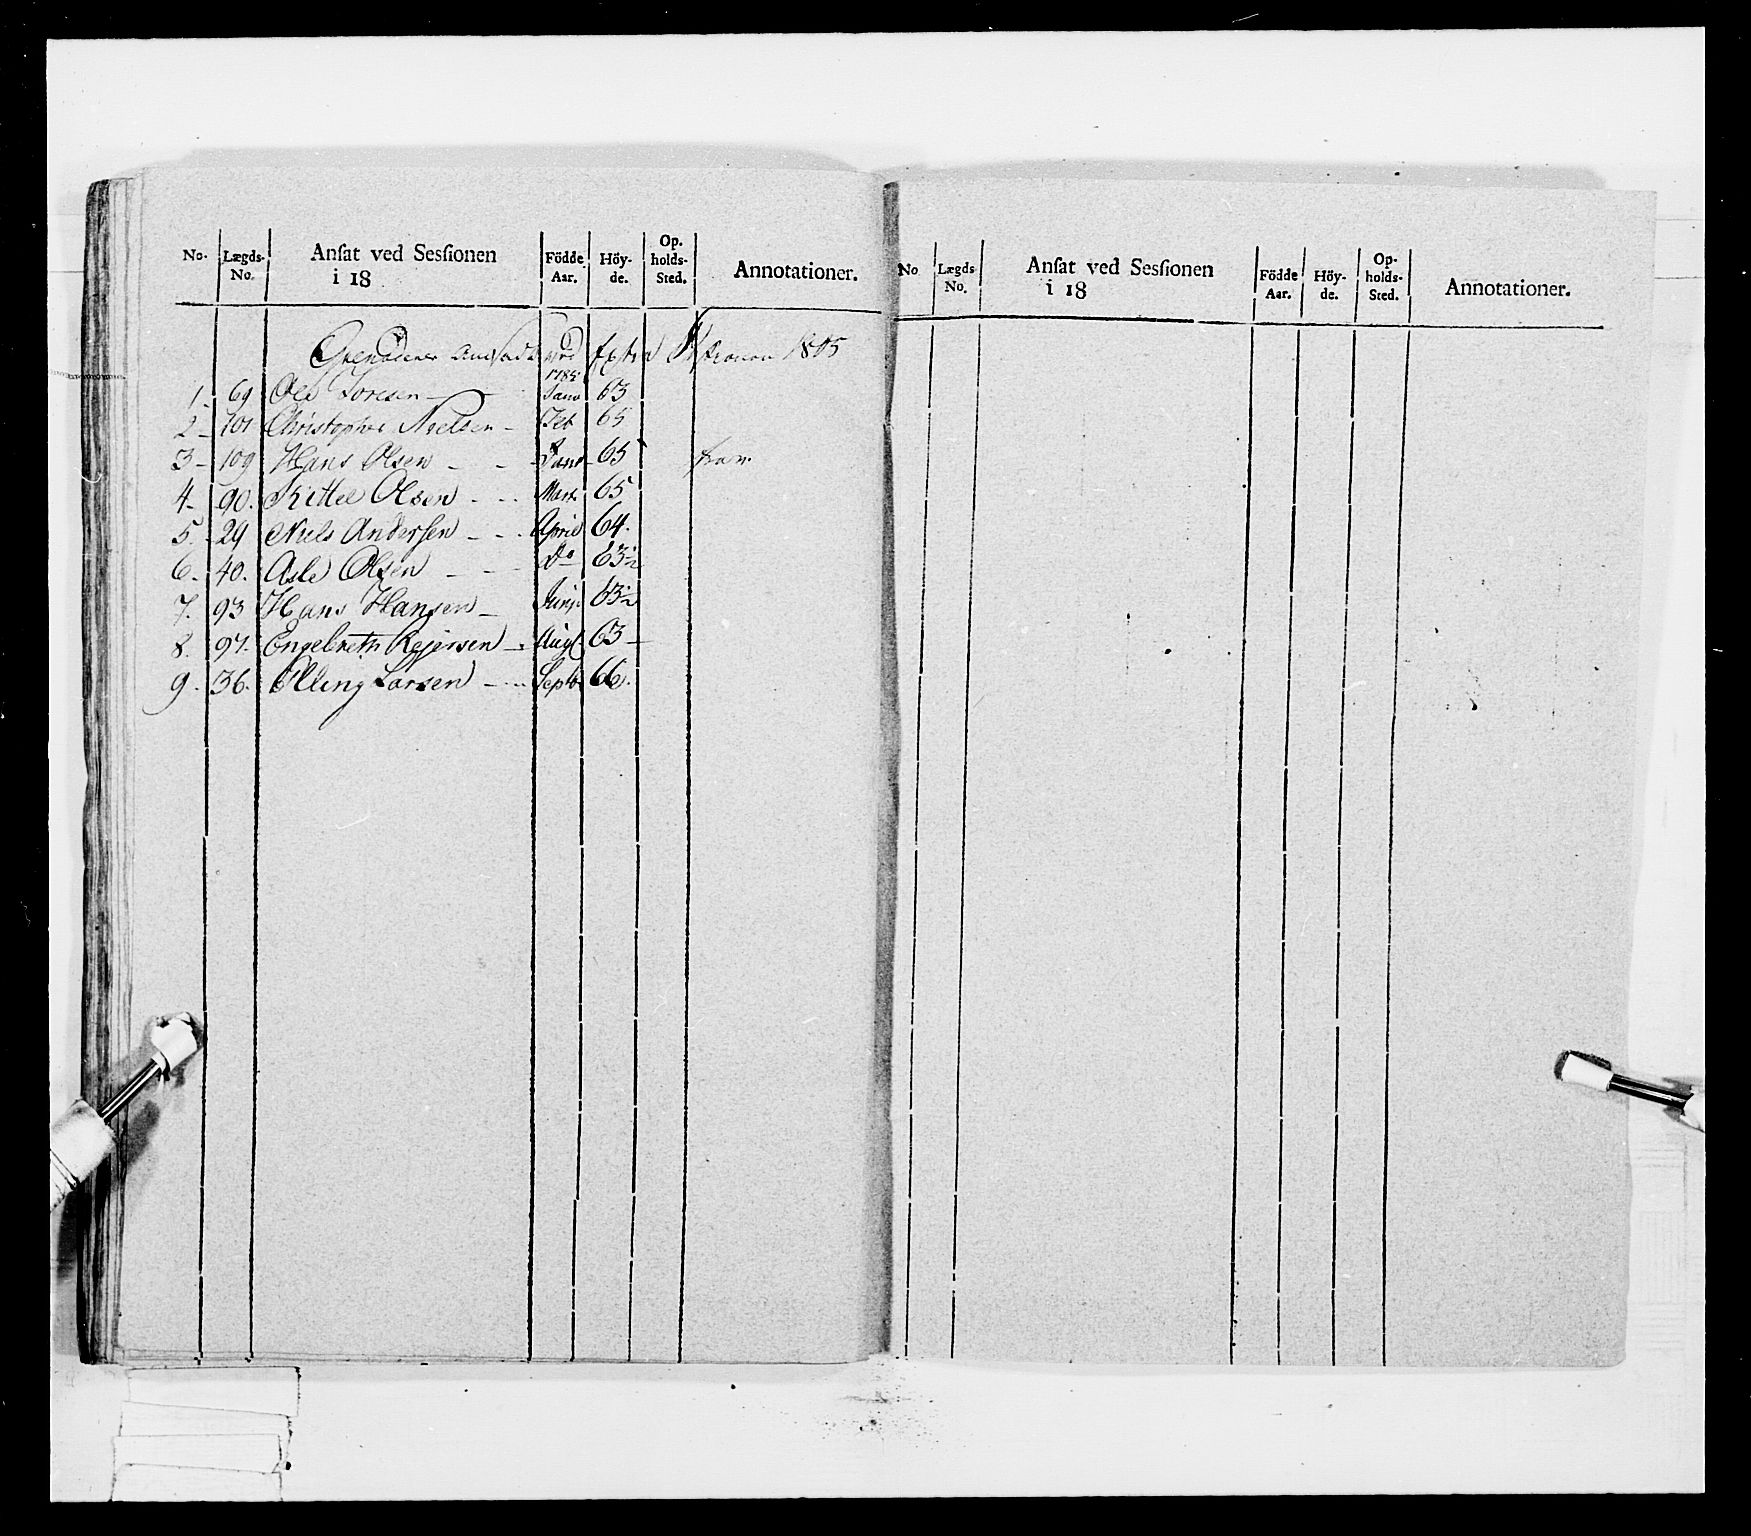 No. Lægds-No. Anſat ved Sesſionen i 18 Födde Aar. Höy-de. Op-holds-Sted. Annotationer.
Grenaderer Ansadt ved Extra Sessionen 1805
1785
1. 69 Ole Joresen - Janv 63
2 - 101 Christopher Nielsen - Feb 65
3 - 109 Hans Olsen - - - Janv 65
4. 90. Kittel Olsen - - - Mart 65
5. 29 Niels Andersen - - - April 64.
6. 40. Asle Olsen - - - Do 63½
7. 93 Hans Hansen - Junj. 63½
8. 97. Engebreth Rejersen - Aug 63 -
9. 36. Elling Larsen - - - Septb 66.
No Lægds No. Anſat ved Sesſionen i 18 Födde Aar. Höy-de. Op-holds-Sted. Annotationer.